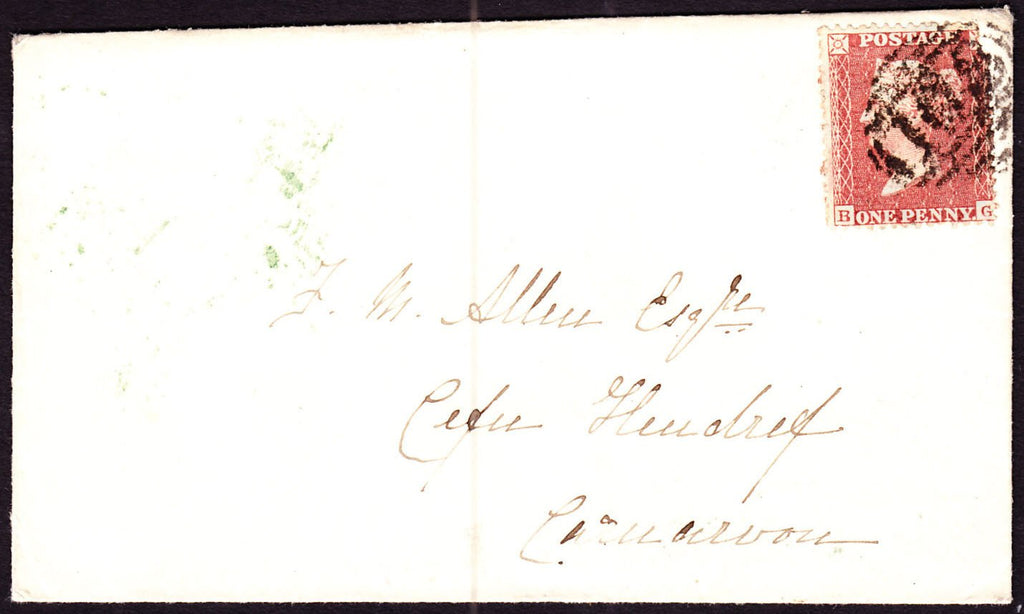 POSTAGE
B ONE PENNY G
F. M. Allen Esqre
Cefn Hendref
Carnarvon